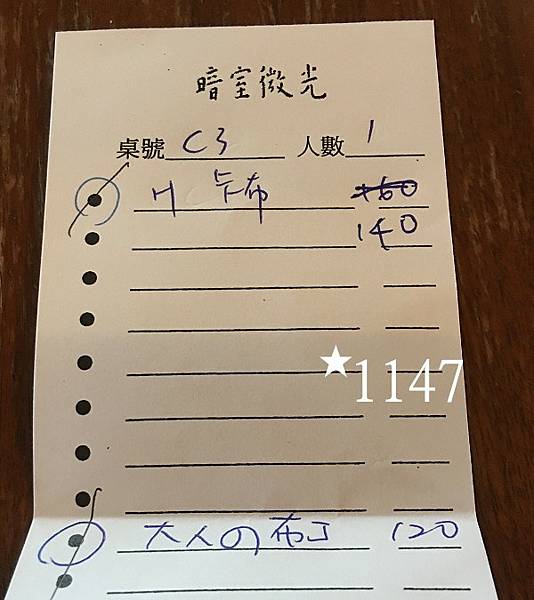 暗室微光
桌號 C3 人數 1
H 卡布 160
140
★1147
大人の布丁 120